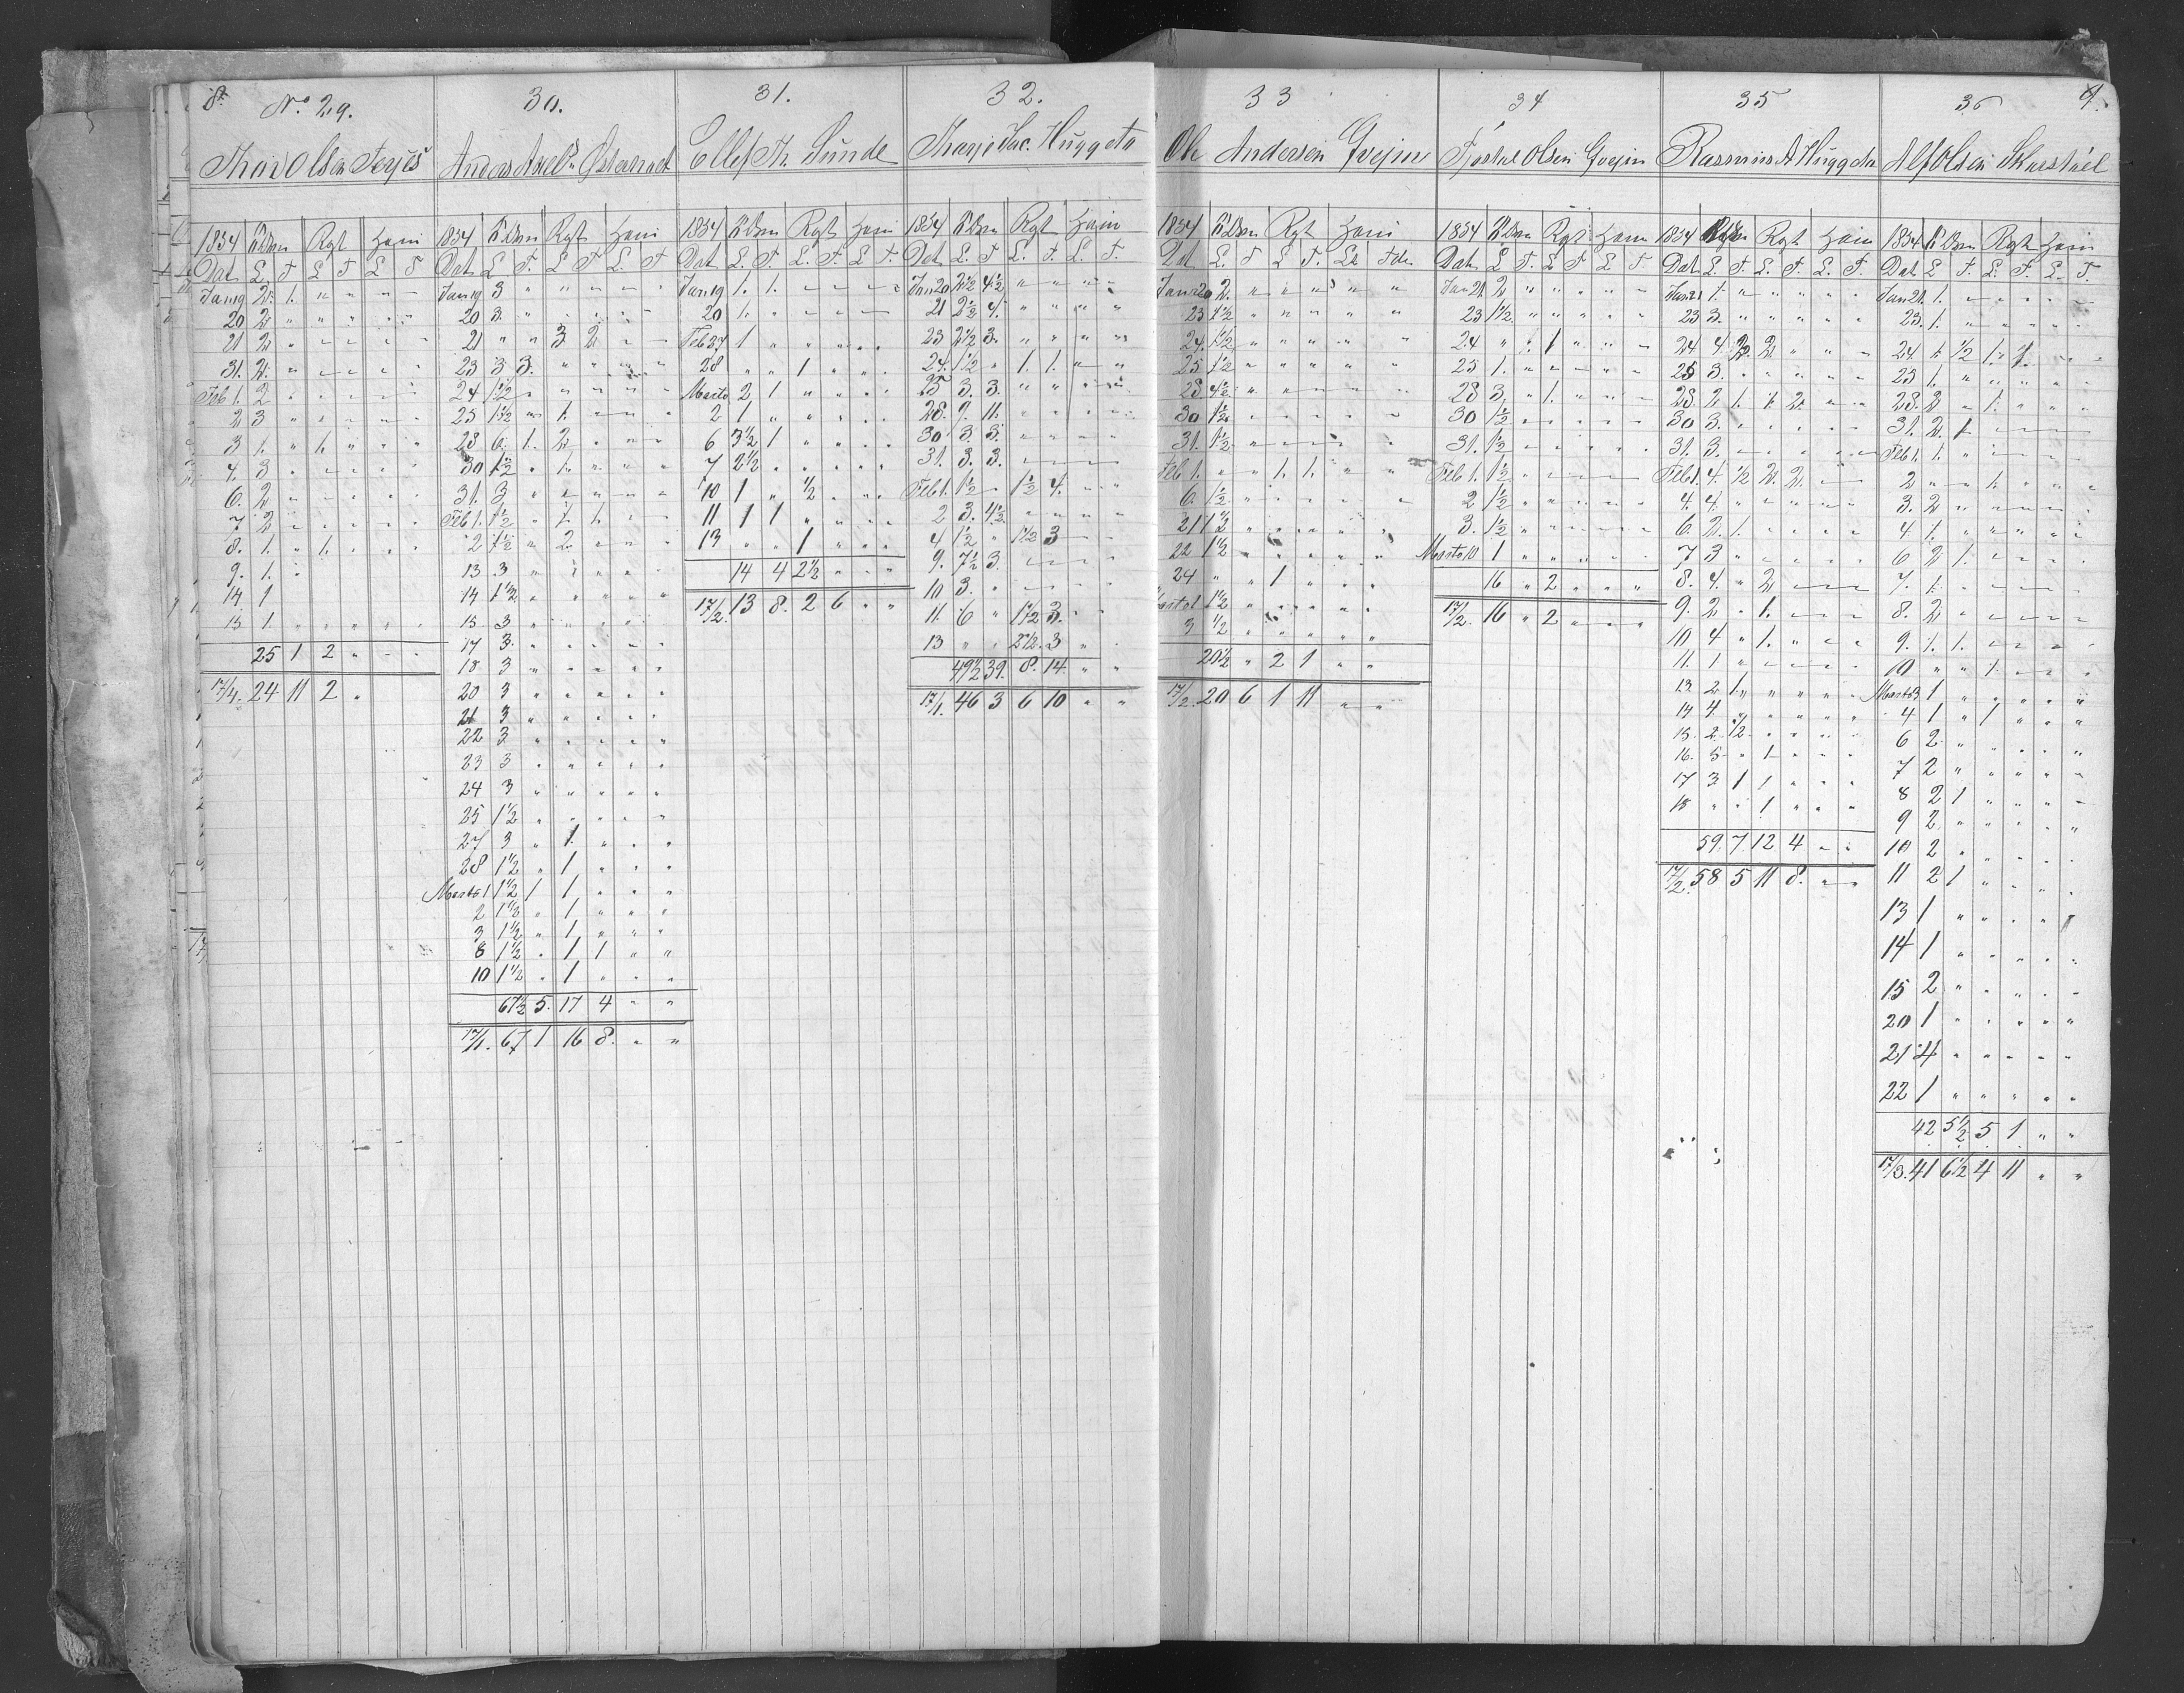 8.
No. 29.
Thov Olsen Terjes
1854 Rgt Ham
Dat L. T L T. L T
Jan 19 2. 1. " " " "
20 2 " " " " "
21 2 " " " " "
31. 2. " " " " "
Feb 1. 2 " " " " "
2 3 " " " " "
3 1. " 1. " " "
4. 3 " " " " "
6. 2 " " " " "
7 2 " " " " "
8. 1. " 1. " " "
9. 1. "
14 1
15 1. " " " " "
25 1 2 " " "
17/4. 24 11 2 "
30.
1854 Rgt Ham
Dat L T. L T L. T
Jan 19 3 " " " " "
20 3. " " " " "
21 " " 3 2 " "
23 3 3. " " " "
24 1 1/2 " " " " "
25 1 1/2 " 1. " " "
28 6. 1. 2 " " "
30 1 1/2 " 1. " " "
31. 3 " " " " "
Feb 1. 1 1/2 " 1. 1. " "
2 1 1/2 " 2 " " "
13 3 " " " " "
14 1 1/2 " " " " "
15. 3 " " " " "
17 3. " " " " "
18 3 " " " " "
20 3 " " " " "
21 3 " " " " "
22 3 " " " " "
23 3 " " " " "
24 3 " " " " "
25 1 1/2 " " " " "
27 3 " 1. " " "
28 1 1/2 " 1 " " "
Marts 1 1 1/2 1 1 " " "
2 1 1/2 " 1 " " "
3 1 1/2 " 1 " " "
8 1 1/2 " 1 1 " "
10 1 1/2 " 1 " " "
67 1/2 5. 17 4 " "
17/1. 67 1 16 8. " "
31.
Ellef Th. Sunde
1854 Rgt Ham
Dat L. T. L. T. L T.
Jan 19 1. 1. " " " "
20 1. " " " " "
Feb 27 1 " " " " "
28 " " 1 " " "
Marts 2 1 " " " "
2 1 " " " " "
6 3 1/2 1 " " " "
7 2 1/2 " " " " "
10 1 " 1/2 " " "
11 1 1 " " " "
13 " " 1 " " "
14 4 2 1/2 " " "
17/2. 13 8. 2 6 " "
32.
Tharje Jac. Huggeto
1854 Rgt Ham
Dat L. T L. T. L. T.
Jan 20 2 1/2 4 1/2 " " " "
21 2 1/2 4. " " " "
23 2 1/2 3. " " " "
24. 1 1/2 " 1. 1. " "
25 3. 3. " " " "
28. 9. 11. " " " "
30 3. 3. " " " "
31. 3. 3. " " " "
Feb 1. 1 1/2 " 1 1/2 4. " "
2 3. 4 1/2 " " " "
4 1/2 " 1 1/2 3 " "
9. 7 1/2 3. " " " "
10 3. " " " " "
11. 6 " 1 1/2 3. " "
13 " " 2 1/2. 3 " "
49 1/2 39. 8. 14. " "
17/1. 46 3 6 10 " "
33
Ole Andersen Gvejn
1854 Rgt Ham
Dat L. T L T. L Tdr
Jan 20 2. " " " " "
23 1 1/2 " " " " "
24. 1 1/2 " " " " "
25 1 1/2 " " " " "
28 4 1/2 " " " " "
30 1 1/2 " " " " "
31. 1 1/2 " " " " "
Feb 1. " " 1. 1. " "
6. 1 1/2 " " " " "
21 1 1/2 " " " " "
22 1 1/2 " " " " "
24 " " 1 " " "
Marts 1 1 1/2 " " " " "
3 1/2 " " " " "
20 1/2 " 2 1 " "
17/2. 20 6 1 11 " "
34
Olsen Gvejn
1854 Rgt Ham
Dat L T. L T L T.
Jan 21. 2 " " " " "
23 1 1/2. " " " " "
24 " " 1 " " "
25 1. " " " " "
28 3, " 1. " " "
30 1/2 " " " " "
31. 1/2 " " " " "
Feb 1. 1 1/2 " " " " "
2 1/2 " " " " "
3. 1/2 " " " " "
Marts 10 1 " " " " "
16 " 2 " " "
17/2. 16 " 2 " " "
35
Rasmus A Huggeto
1854 Rgt Ham
Dat L. T. L. T. L. T.
Jan 21 1. " " " " "
23 3. " " " " "
24 4. 1/2 2 " " "
25 3. " " " " "
28. 2 1. 1. 2 " "
30 3. " " " " "
31. 3. " " " " "
Feb 1. 4. 1/2 2. 2. " "
4. 4. " " " " "
6. 2. 1. " " " "
7 3 " " " " "
8. 4. " 2 " " "
9. 2 " 1. " " "
10 4 " 1. " " "
11. 1 " " " " "
13. 2 1. " " " "
14 4. " " " " "
15. 2. 1/2 " " " "
16. 5 " 1 " " "
17 3 1 1 " " "
18 " " 1 " " "
59. 7 12 4 " "
17/2. 58 5 11 8. " "
36
9.
Alf Olsen Skarstuel
1854 Rgt Ham
Dat L T. L. T. L. T
Jan 21. 1. " " " " "
23. 1. " " " " "
24 1. 1/2 1. 1. " "
25 1. " " " " "
28. 2 " 1. " " "
31. 2. 1 " " " "
Feb 1. 1. " " " " "
2 " " 1. " " "
3. 2 " " " " "
4 1. " " " " "
6 2 1. " " " "
7. 1. " " " " "
8. 2 " " " " "
9. 1. 1. " " " "
10 " " 1. " " "
Marts 3 1 " " " " "
4 1 " 1 " " "
6 2 " " " " "
7 2 " " " " "
8 2 1 " " " "
9 2 " " " " "
10 2 " " " " "
11 2 1 " " " "
13 1 " " " " "
14 1 " " " " "
15 2 " " " " "
20 1 " " " " "
21 4 " " " " "
22 1 " " " " "
42 5 1/2 5 1 " "
17/3. 41 6 1/2 4 11 " "